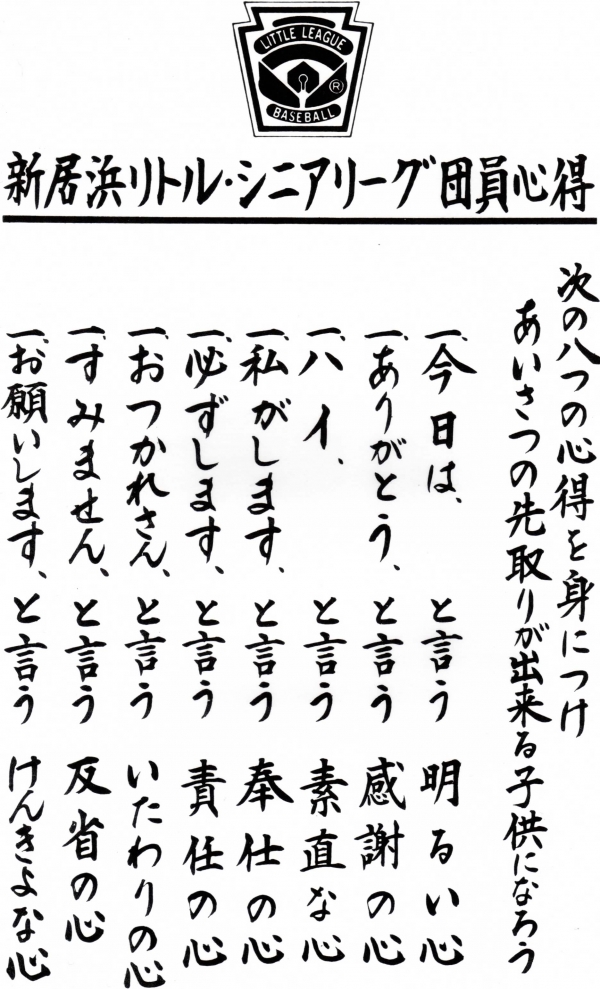 LITTLE LEAGUE
BASEBALL
®
新居浜リトル・シニアリーグ団員心得
次の八つの心得を身につけ
あいさつの先取りが出来る子供になろう
一、今日は、と言う 明るい心
一、ありがとう、と言う 感謝の心
一、ハイ、と言う 素直な心
一、私がします、と言う 奉仕の心
一、必ずします、と言う 責任の心
一、おつかれさん、と言う いたわりの心
一、すみません、と言う 反省の心
一、お願いします、と言う けんきよな心